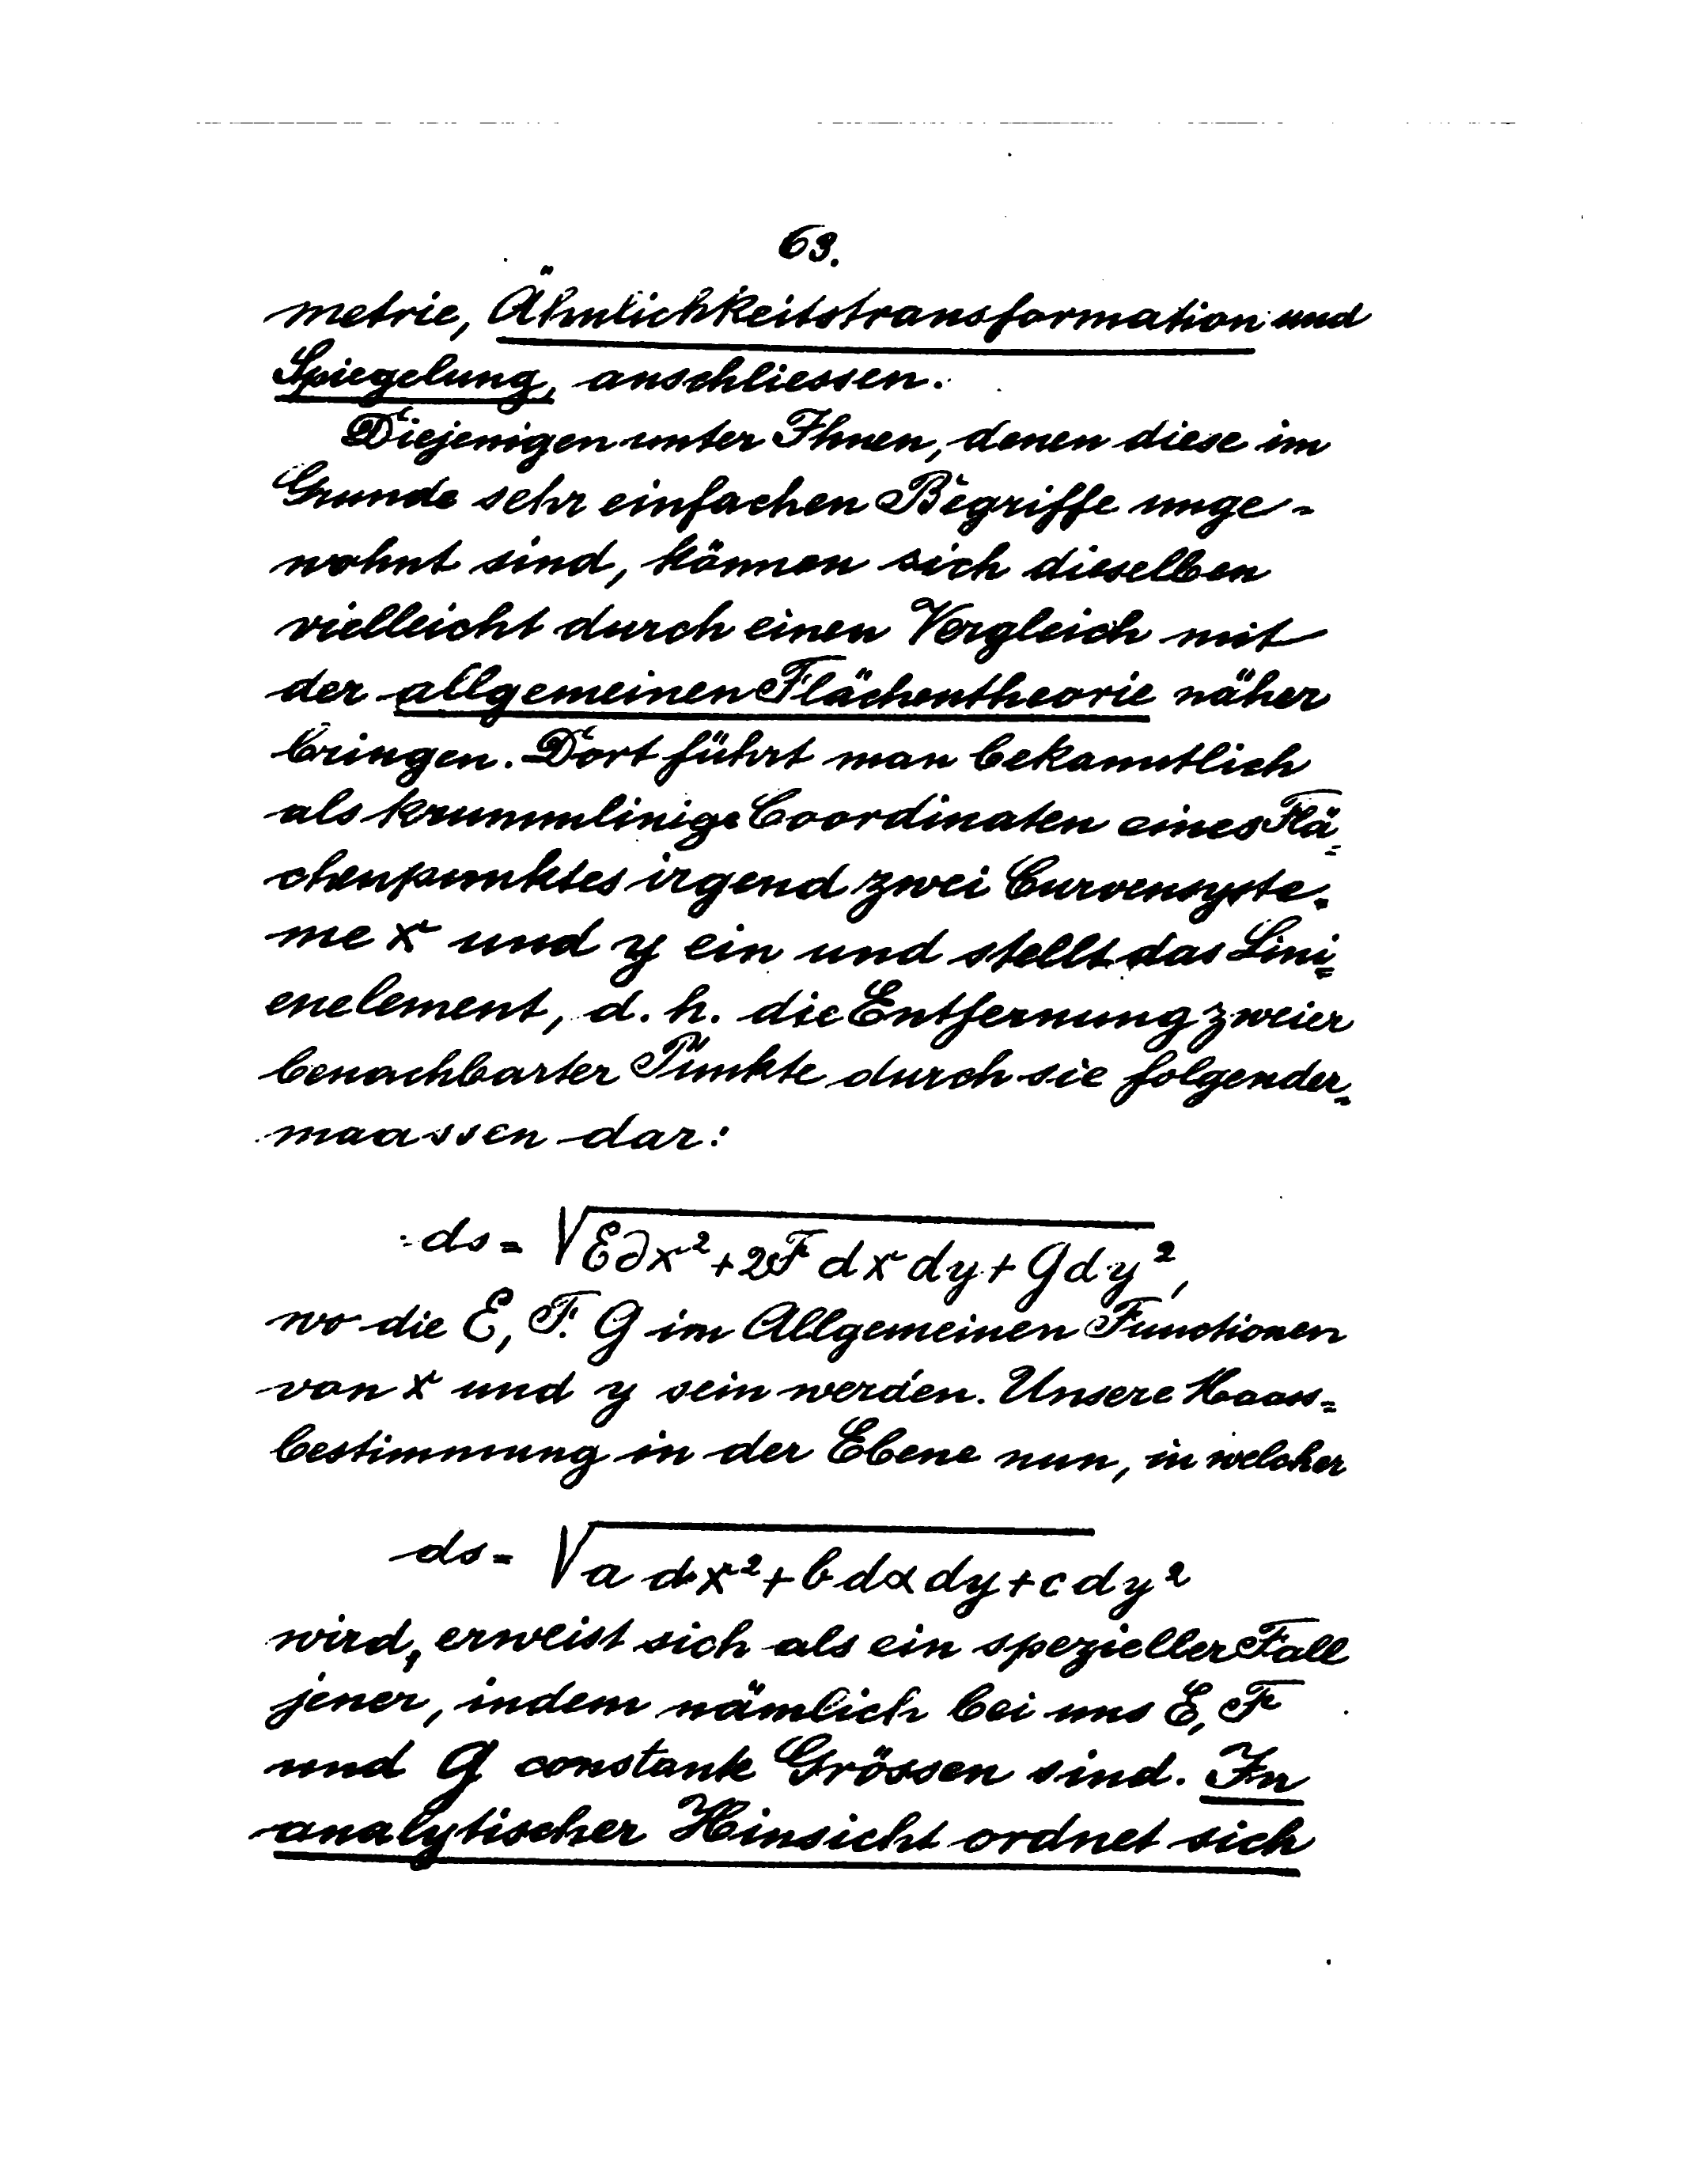 63.
metrie, Ähnlichkeitstransformation und
Spiegelung, anschliessen.
Diejenigen unter Ihnen, denen diese im
Grunde sehr einfachen Begriffe unge-
wohnt sind, können sich dieselben
vielleicht durch einen Vergleich mit
der allgemeinen Flächentheorie näher
bringen. Dort führt man bekanntlich
als krummlinige Coordinaten eines Flä-
chenpunktes irgend zwei Curvensyste-
me x und y ein und stellt das Lini-
enelement, d. h. die Entfernung zweier
benachbarter Punkte durch sie folgender-
maassen dar:
ds = √E∂x²+2F dx dy + G dy²,
wo die E, F. G im Allgemeinen Functionen
von x und y sein werden. Unsere Maass-
bestimmung in der Ebene nun, in welcher
ds = √a dx²+b dx dy + c dy²
wird, erweist sich als ein spezieller Fall
jener, indem nämlich bei uns E, F
und G constante Grössen sind. In
analytischer Hinsicht ordnet sich